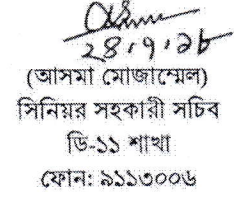 ২৪.৭.১৮
(আসমা মোজাম্মেল)
সিনিয়র সহকারী সচিব
ডি-১১ শাখা
ফোন: ৯১১৩০০৬